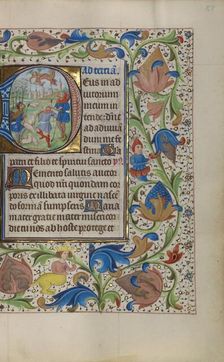 Ad tertiā.
Eus in ad
iutorium
meum in
tende: dñe
ad adiuvā
dum me fe
stina
patri et filio et spiritui sancto
Memento salutis auctor
quod nr̄i quondam cor
poris ex illibata virgine nascē
do formam sumpseris Maria
mater gratie mater misericor
die tu nos ab hoste protege et